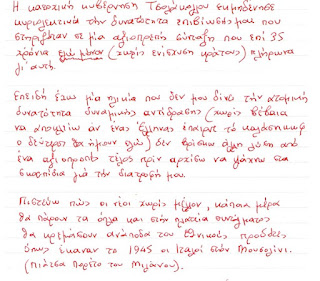 Η κατοχική κυβέρνηση Τσολάκογλου εκμηδένησε
κυριολεκτικά την δυνατότητα επιβίωσής μου που
στηριζόταν σε μια αξιοπρεπή σύνταξη που επί 35
χρόνια εγώ μόνον (χωρίς ενίσχυση κράτους) πλήρωνα
γι' αυτή.
Επειδή έχω μία ηλικία που δεν μου δίνει την ατομική
δυνατότητα δυναμικής αντίδρασης (χωρίς βέβαια
να αποκλείω αν ένας έλληνας έπαιρνε το καλάσνικωφ
ο δεύτερος θα ήμουν εγώ) δεν βρίσκω άλλη λύση από
ένα αξιοπρεπές τέλος πριν αρχίσω να ψάχνω στα
σκουπίδια για την διατροφή μου.
Πιστεύω πως οι νέοι χωρίς μέλλον, κάποια μέρα
θα πάρουν τα όπλα και στην πλατεία συντάγματος
θα κρεμάσουν ανάποδα τους εθνικούς προδότες
όπως έκαναν το 1945 οι Ιταλοί στον Μουσολίνι.
(πιάτσα Πορέτο του Μιλάνου).